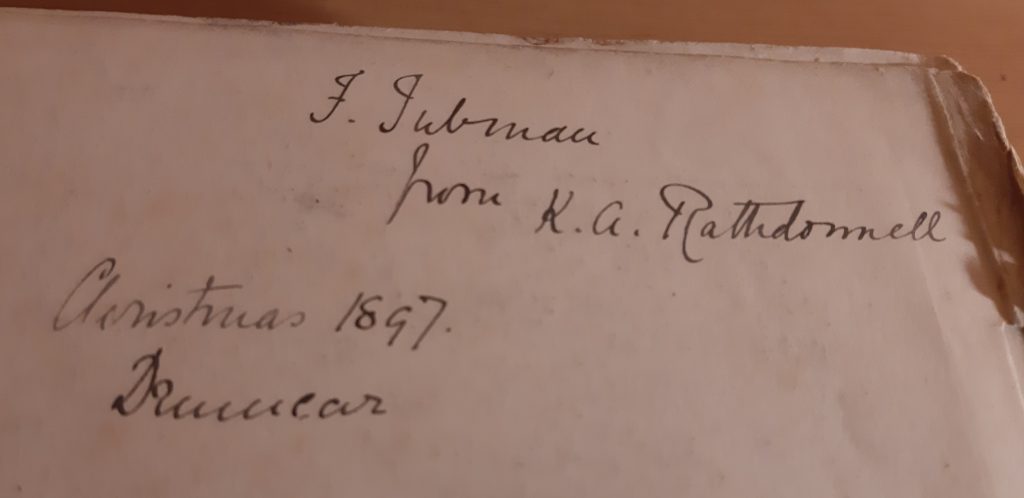 F. Tubman
from K. A. Rathdonnell
Christmas 1897.
Drumcar